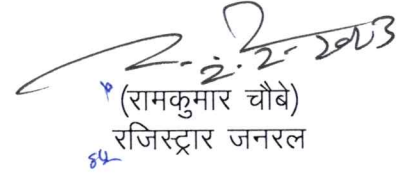 2023
(रामकुमार चौबे)
रजिस्ट्रार जनरल